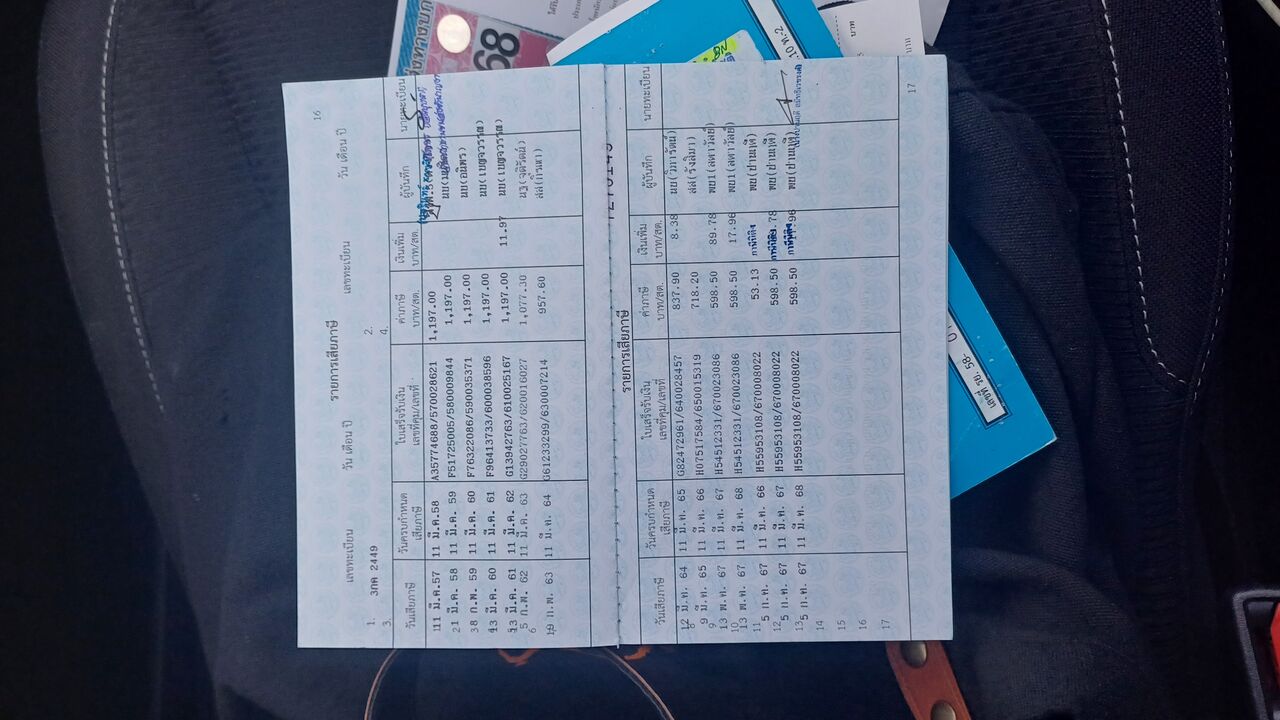 16
เลขทะเบียน วัน เดือน ปี รายการเสียภาษี เลขทะเบียน วัน เดือน ปี
1. 3กค 2449 2.
3. 4.
วันเสียภาษี วันครบกำหนดเสียภาษี ใบเสร็จรับเงิน เล่มที่คุม/เลขที่ ค่าภาษี บาท/สต. เงินเพิ่ม บาท/สต. ผู้บันทึก นายทะเบียน
11 มี.ค.57 11 มี.ค.58 A35774688/570028621 1,197.00
21 มี.ค. 58 11 มี.ค. 59 F51725005/560009844 1,197.00
8 ก.พ. 59 11 มี.ค. 60 F76322086/590035371 1,197.00 นย(อนิพร)
13 มี.ค. 60 11 มี.ค. 61 F96413733/600038596 1,197.00 นย(เบญจวรรณ)
13 มี.ค. 61 11 มี.ค. 62 G13942763/610025167 1,197.00 11.97 นย(เบญจวรรณ)
5 ก.พ. 62 11 มี.ค. 63 G29027763/620016027 1,077.30 นฐ(จุติรัตน์)
6 19 ก.พ. 63 11 มี.ค. 64 G61233299/630007214 957.60
รายการเสียภาษี
วันเสียภาษี วันครบกำหนดเสียภาษี ใบเสร็จรับเงิน เล่มที่คุม/เลขที่ ค่าภาษี บาท/สต. เงินเพิ่ม บาท/สต. ผู้บันทึก นายทะเบียน
12 มี.ค. 64 11 มี.ค. 65 G82472961/640028457 837.90 8.38 นย(วิภารัตน์)
8 9 มี.ค. 65 11 มี.ค. 66 H07517584/650015319 718.20 สส(รังสิมา)
9 13 พ.ค. 67 11 มี.ค. 67 H54512331/670023086 598.50 89.78 พย1(ลดาวัลย์)
10 13 พ.ค. 67 11 มี.ค. 68 H54512331/670023086 598.50 17.96 พย1(ลดาวัลย์)
11 5 ก.ค. 67 11 มี.ค. 66 H55953108/670008022 53.13 พย(ปานฤดี)
12 5 ก.ค. 67 11 มี.ค. 67 H55953108/670008022 598.50 78 พย(ปานฤดี)
13 5 ก.ค. 67 11 มี.ค. 68 H55953108/670008022 598.50 .96 พย(ปานฤดี)
14
15
16
17
17
68
บาท
เลขที่ ขย. 58.